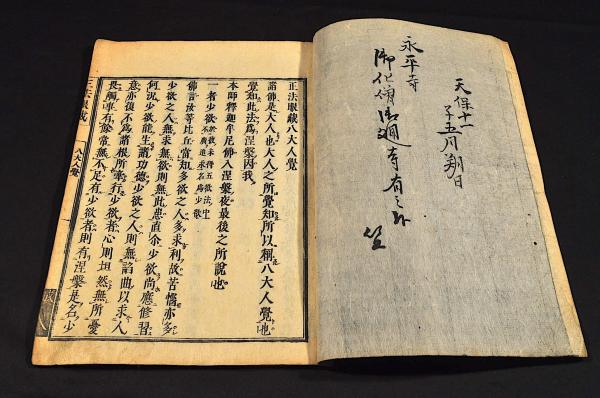 天保十一
子五月朔日
永平寺
正法眼藏八大人覺
諸佛是大人也大人之所覺知所以稱八大人覺也
覺知此法爲涅槃因我
本師釋迦牟尼佛入涅槃夜最後之所說也
一者少欲 於彼未得五欲法中
不廣追求名爲少欲
佛言汝等比丘當知多欲之人多求利故苦惱亦多
少欲之人無求無欲則無此患直尒少欲尚應修習
何況少欲能生諸功德少欲之人則無諂曲以求人
意亦復不爲諸根所牽行少欲者心則坦然無所憂
畏觸事有餘常無不足有少欲者則有涅槃是名少
正法眼藏
八大人覺